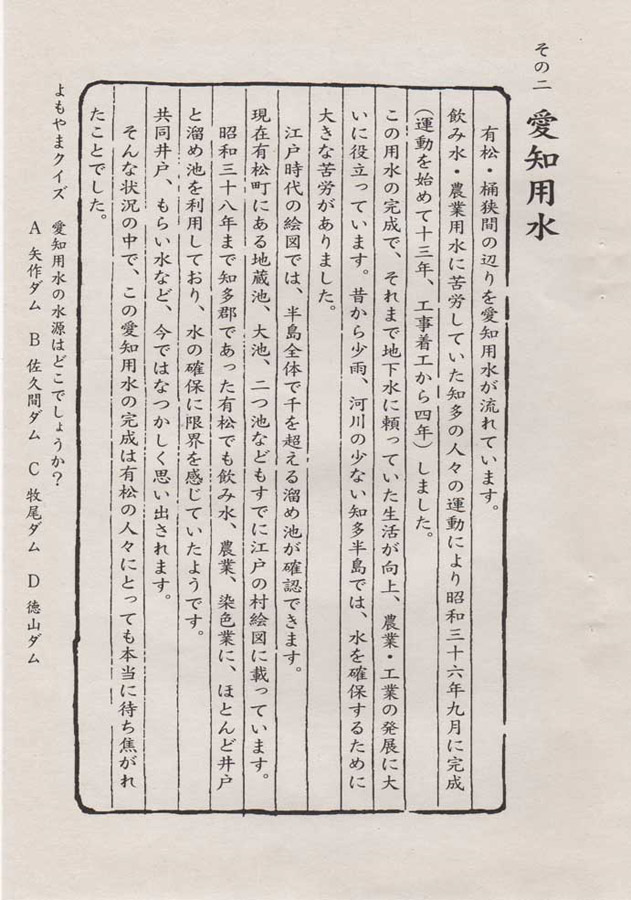 その二 愛知用水
有松・桶狭間の辺りを愛知用水が流れています。
飲み水・農業用水に苦労していた知多の人々の運動により昭和三十六年九月に完成
(運動を始めて十三年、工事着工から四年)しました。
この用水の完成で、それまで地下水に頼っていた生活が向上、農業・工業の発展に大
いに役立っています。昔から少雨、河川の少ない知多半島では、水を確保するために
大きな苦労がありました。
江戸時代の絵図では、半島全体で千を超える溜め池が確認できます。
現在有松町にある地蔵池、大池、二つ池などもすでに江戸の村絵図に載っています。
昭和三十八年まで知多郡であった有松でも飲み水、農業、染色業に、ほとんど井戸
と溜め池を利用しており、水の確保に限界を感じていたようです。
共同井戸、もらい水など、今ではなつかしく思い出されます。
そんな状況の中で、この愛知用水の完成は有松の人々にとっても本当に待ち焦がれ
たことでした。
よもやまクイズ 愛知用水の水源はどこでしょうか?
A 矢作ダム B 佐久間ダム C 牧尾ダム D 徳山ダム